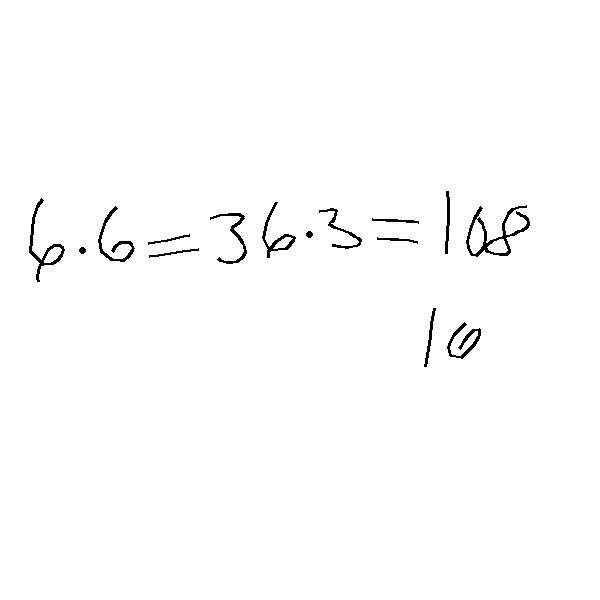 6.6=36.3=108
10